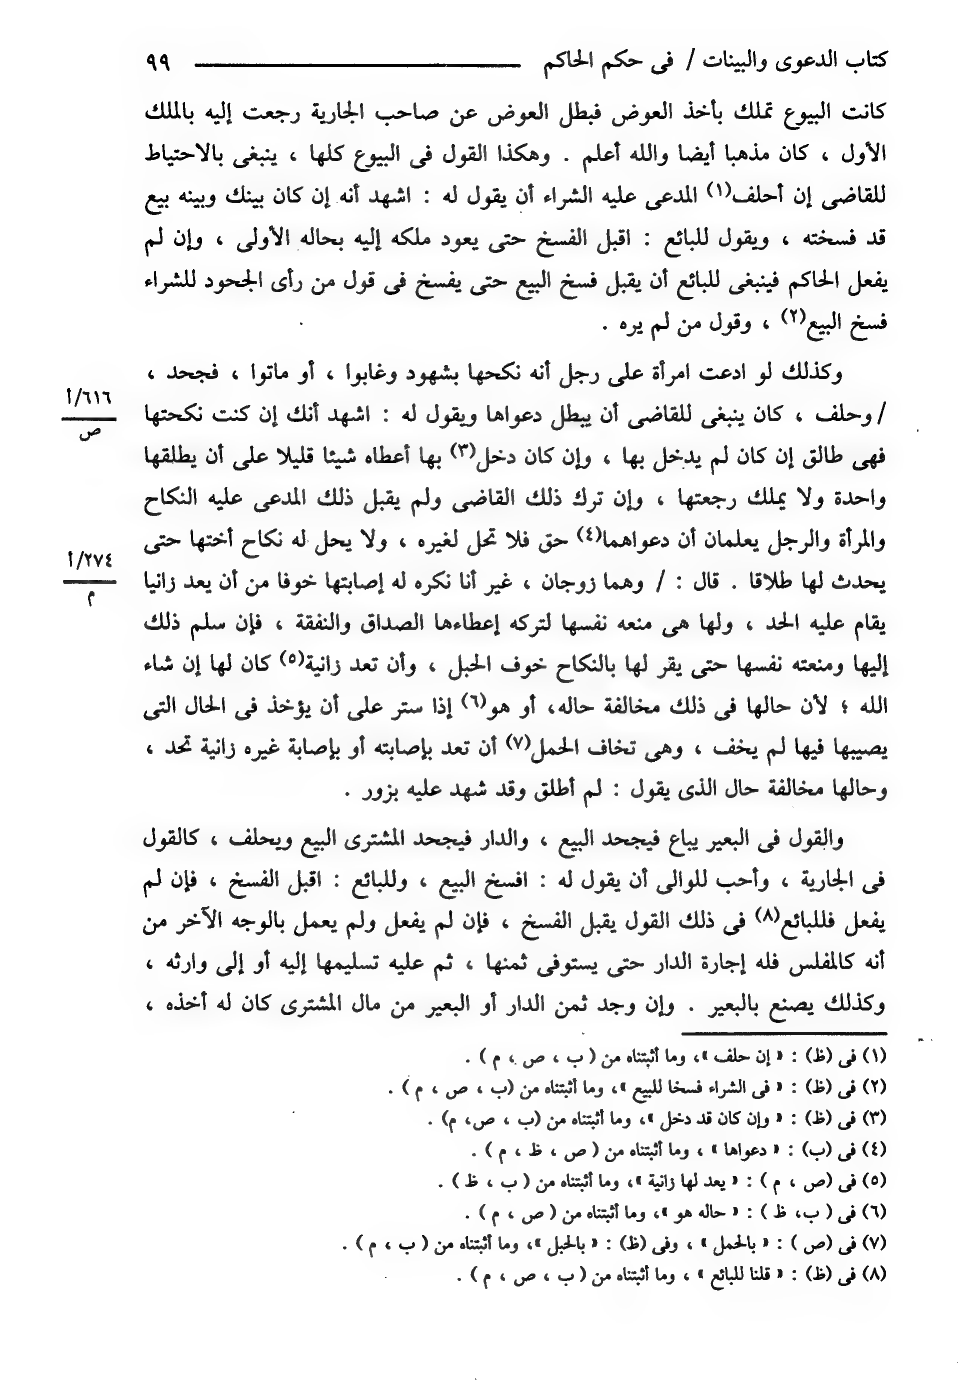 كتاب الدعوى والبينات / فى حكم الحاكم ٩٩
كانت البيوع تملك بأخذ العوض فبطل العوض عن صاحب الجارية رجعت إليه بالملك
الأول ، كان مذهبا أيضا والله أعلم . وهكذا القول فى البيوع كلها ، ينبغى بالاحتياط
للقاضى إن أحلف(١) المدعى عليه الشراء أن يقول له : اشهد أنه إن كان بينك وبينه بيع
قد فسخته ، ويقول للبائع : اقبل الفسخ حتى يعود ملكه إليه بحاله الأولى ، وإن لم
يفعل الحاكم فينبغى للبائع أن يقبل فسخ البيع حتى يفسخ فى قول من رأى الجحود للشراء
فسخ البيع(٢) ، وقول من لم يره .
وكذلك لو ادعت امرأة على رجل أنه نكحها بشهود وغابوا ، أو ماتوا ، فجحد ،
/ وحلف ، كان ينبغى للقاضى أن يبطل دعواها ويقول له : اشهد أنك إن كنت نكحتها
٦١٦/أ
ص
فهى طالق إن كان لم يدخل بها ، وإن كان دخل(٣) بها أعطاه شيئا قليلا على أن يطلقها
واحدة ولا يملك رجعتها ، وإن ترك ذلك القاضى ولم يقبل ذلك المدعى عليه النكاح
والمرأة والرجل يعلمان أن دعواهما(٤) حق فلا تحل لغيره ، ولا يحل له نكاح أختها حتى
يحدث لها طلاقا . قال : / وهما زوجان ، غير أنا نكره له إصابتها خوفا من أن يعد زانيا
٢٧٤/أ
م
يقام عليه الحد ، ولها هى منعه نفسها لتركه إعطاءها الصداق والنفقة ، فإن سلم ذلك
إليها ومنعته نفسها حتى يقر لها بالنكاح خوف الحبل ، وأن تعد زانية(٥) كان لها إن شاء
الله ؛ لأن حالها فى ذلك مخالفة حاله، أو هو(٦) إذا ستر على أن يؤخذ فى الحال التى
يصيبها فيها لم يخف ، وهى تخاف الحمل(٧) أن تعد بإصابته أو بإصابة غيره زانية تحد ،
وحالها مخالفة حال الذى يقول : لم أطلق وقد شهد عليه بزور .
والقول فى البعير يباع فيجحد البيع ، والدار فيجحد المشترى البيع ويحلف ، كالقول
فى الجارية ، وأحب للوالى أن يقول له : افسخ البيع ، وللبائع : اقبل الفسخ ، فإن لم
يفعل فللبائع(٨) فى ذلك القول يقبل الفسخ ، فإن لم يفعل ولم يعمل بالوجه الآخر من
أنه كالمفلس فله إجارة الدار حتى يستوفى ثمنها ، ثم عليه تسليمها إليه أو إلى وارثه ،
وكذلك يصنع بالبعير . وإن وجد ثمن الدار أو البعير من مال المشترى كان له أخذه ،
(١) فى (ظ) : « إن حلف »، وما أثبتناه من ( ب ، ص ، م ) .
(٢) فى (ظ) : « فى الشراء فسخا للبيع »، وما أثبتناه من (ب ، ص ، م ) .
(٣) فى (ظ) : « وإن كان قد دخل »، وما أثبتناه من (ب ، ص، م) .
(٤) فى (ب) : « دعواها » ، وما أثبتناه من ( ص ، ظ ، م ) .
(٥) فى (ص ، م ) : « يعد لها زانية »، وما أثبتناه من ( ب ، ظ ) .
(٦) فى ( ب، ظ ) : « حاله هو »، وما أثبتناه من ( ص ، م ) .
(٧) فى (ص ) : « بالحمل » ، وفى (ظ) : « بالحبل »، وما أثبتناه من ( ب ، م ) .
(٨) فى (ظ) : « قلنا للبائع » ، وما أثبتناه من ( ب ، ص ، م ) .